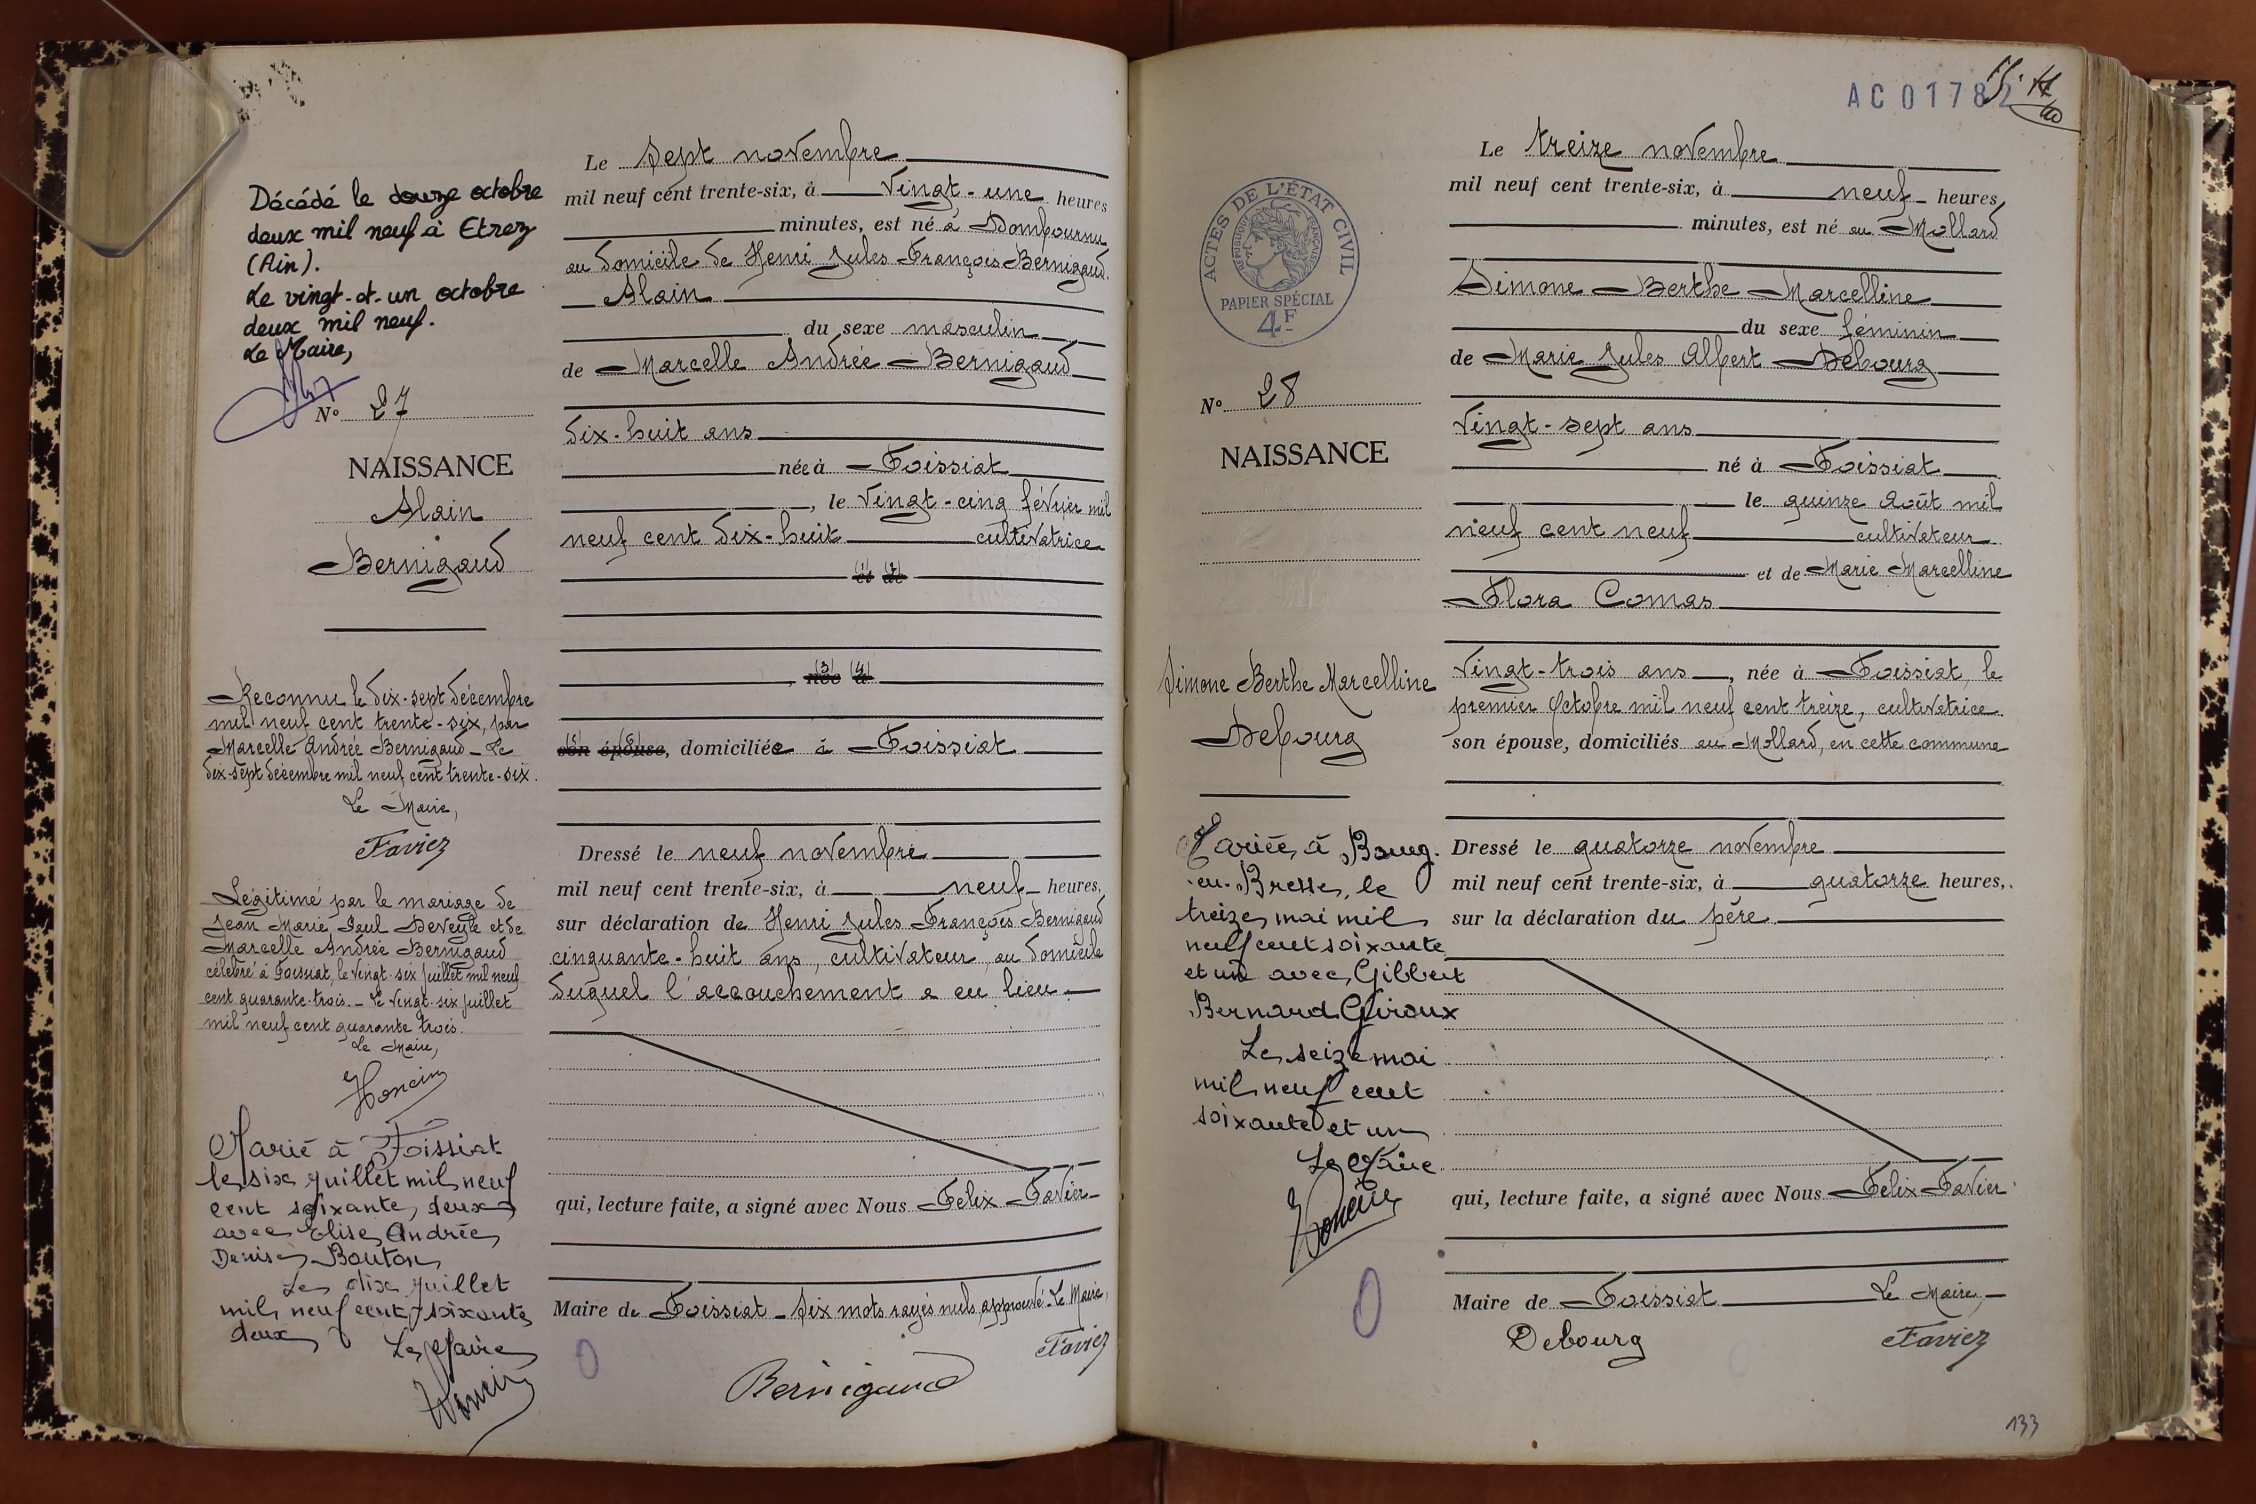 Décédé le douze octobre
deux mil neuf à Etrez
(Ain).
Le vingt-et-un octobre
deux mil neuf.
Le Maire,
N° 27
NAISSANCE
Alain
Bernigaud
Reconnu le dix-sept décembre
mil neuf cent trente-six, par
Marcelle Andrée Bernigaud - Le
dix-sept décembre mil neuf cent trente-six.
Le Maire,
Favier
Légitimé par le mariage de
Jean Marie Paul Deveyle et de
Marcelle Andrée Bernigaud
célébré à Foissiat, le vingt-six juillet mil neuf
cent quarante-trois. - Le vingt-six juillet
mil neuf cent quarante trois.
Le Maire,
Marié à Foissiat
le six juillet mil neuf
cent soixante deux
avec Elise Andrée
Denise Bouton
Le dix juillet
mil neuf cent soixante
deux
Le Maire
Le sept novembre
mil neuf cent trente-six, à vingt-une heures
minutes, est né à Dombournu
au domicile de Henri Jules François Bernigaud.
Alain
du sexe masculin
de Marcelle Andrée Bernigaud
dix-huit ans
née à Foissiat
, le vingt-cinq février mil
neuf cent dix-huit cultivatrice
(1) (2)
et de
(3) (4)
, née à
(5) (6)
son épouse, domiciliée à Foissiat
Dressé le neuf novembre
mil neuf cent trente-six, à neuf heures,
sur déclaration de Henri Jules François Bernigaud
cinquante-huit ans, cultivateur, au domicile
duquel l'accouchement a eu lieu
qui, lecture faite, a signé avec Nous Felix Favier
Maire de Foissiat - Six mots rayés nuls, approuvé. Le Maire,
Favier
Bernigaud
AC 01782
N° 28
NAISSANCE
ACTES DE L'ÉTAT CIVIL
RÉPUBLIQUE FRANÇAISE
PAPIER SPÉCIAL
4F
Simone Berthe Marcelline
Debourg
Mariée à Bourg-
en-Bresse, le
treize mai mil
neuf cent soixante
et un avec Gilbert
Bernard Giroux
Le seize mai
mil neuf cent
soixante et un
Le Maire
Le treize novembre
mil neuf cent trente-six, à neuf heures
minutes, est né au Mollard
Simone Berthe Marcelline
du sexe féminin
de Marie Jules Albert Debourg
vingt-sept ans
né à Foissiat
le quinze Août mil
neuf cent neuf cultivateur
et de Marie Marcelline
Flora Comas
vingt-trois ans, née à Foissiat, le
premier Octobre mil neuf cent treize, cultivatrice
son épouse, domiciliés au Mollard, en cette commune
Dressé le quatorze novembre
mil neuf cent trente-six, à quatorze heures,
sur la déclaration du père
qui, lecture faite, a signé avec Nous Felix Favier
Maire de Foissiat Le Maire,
Debourg Favier
133